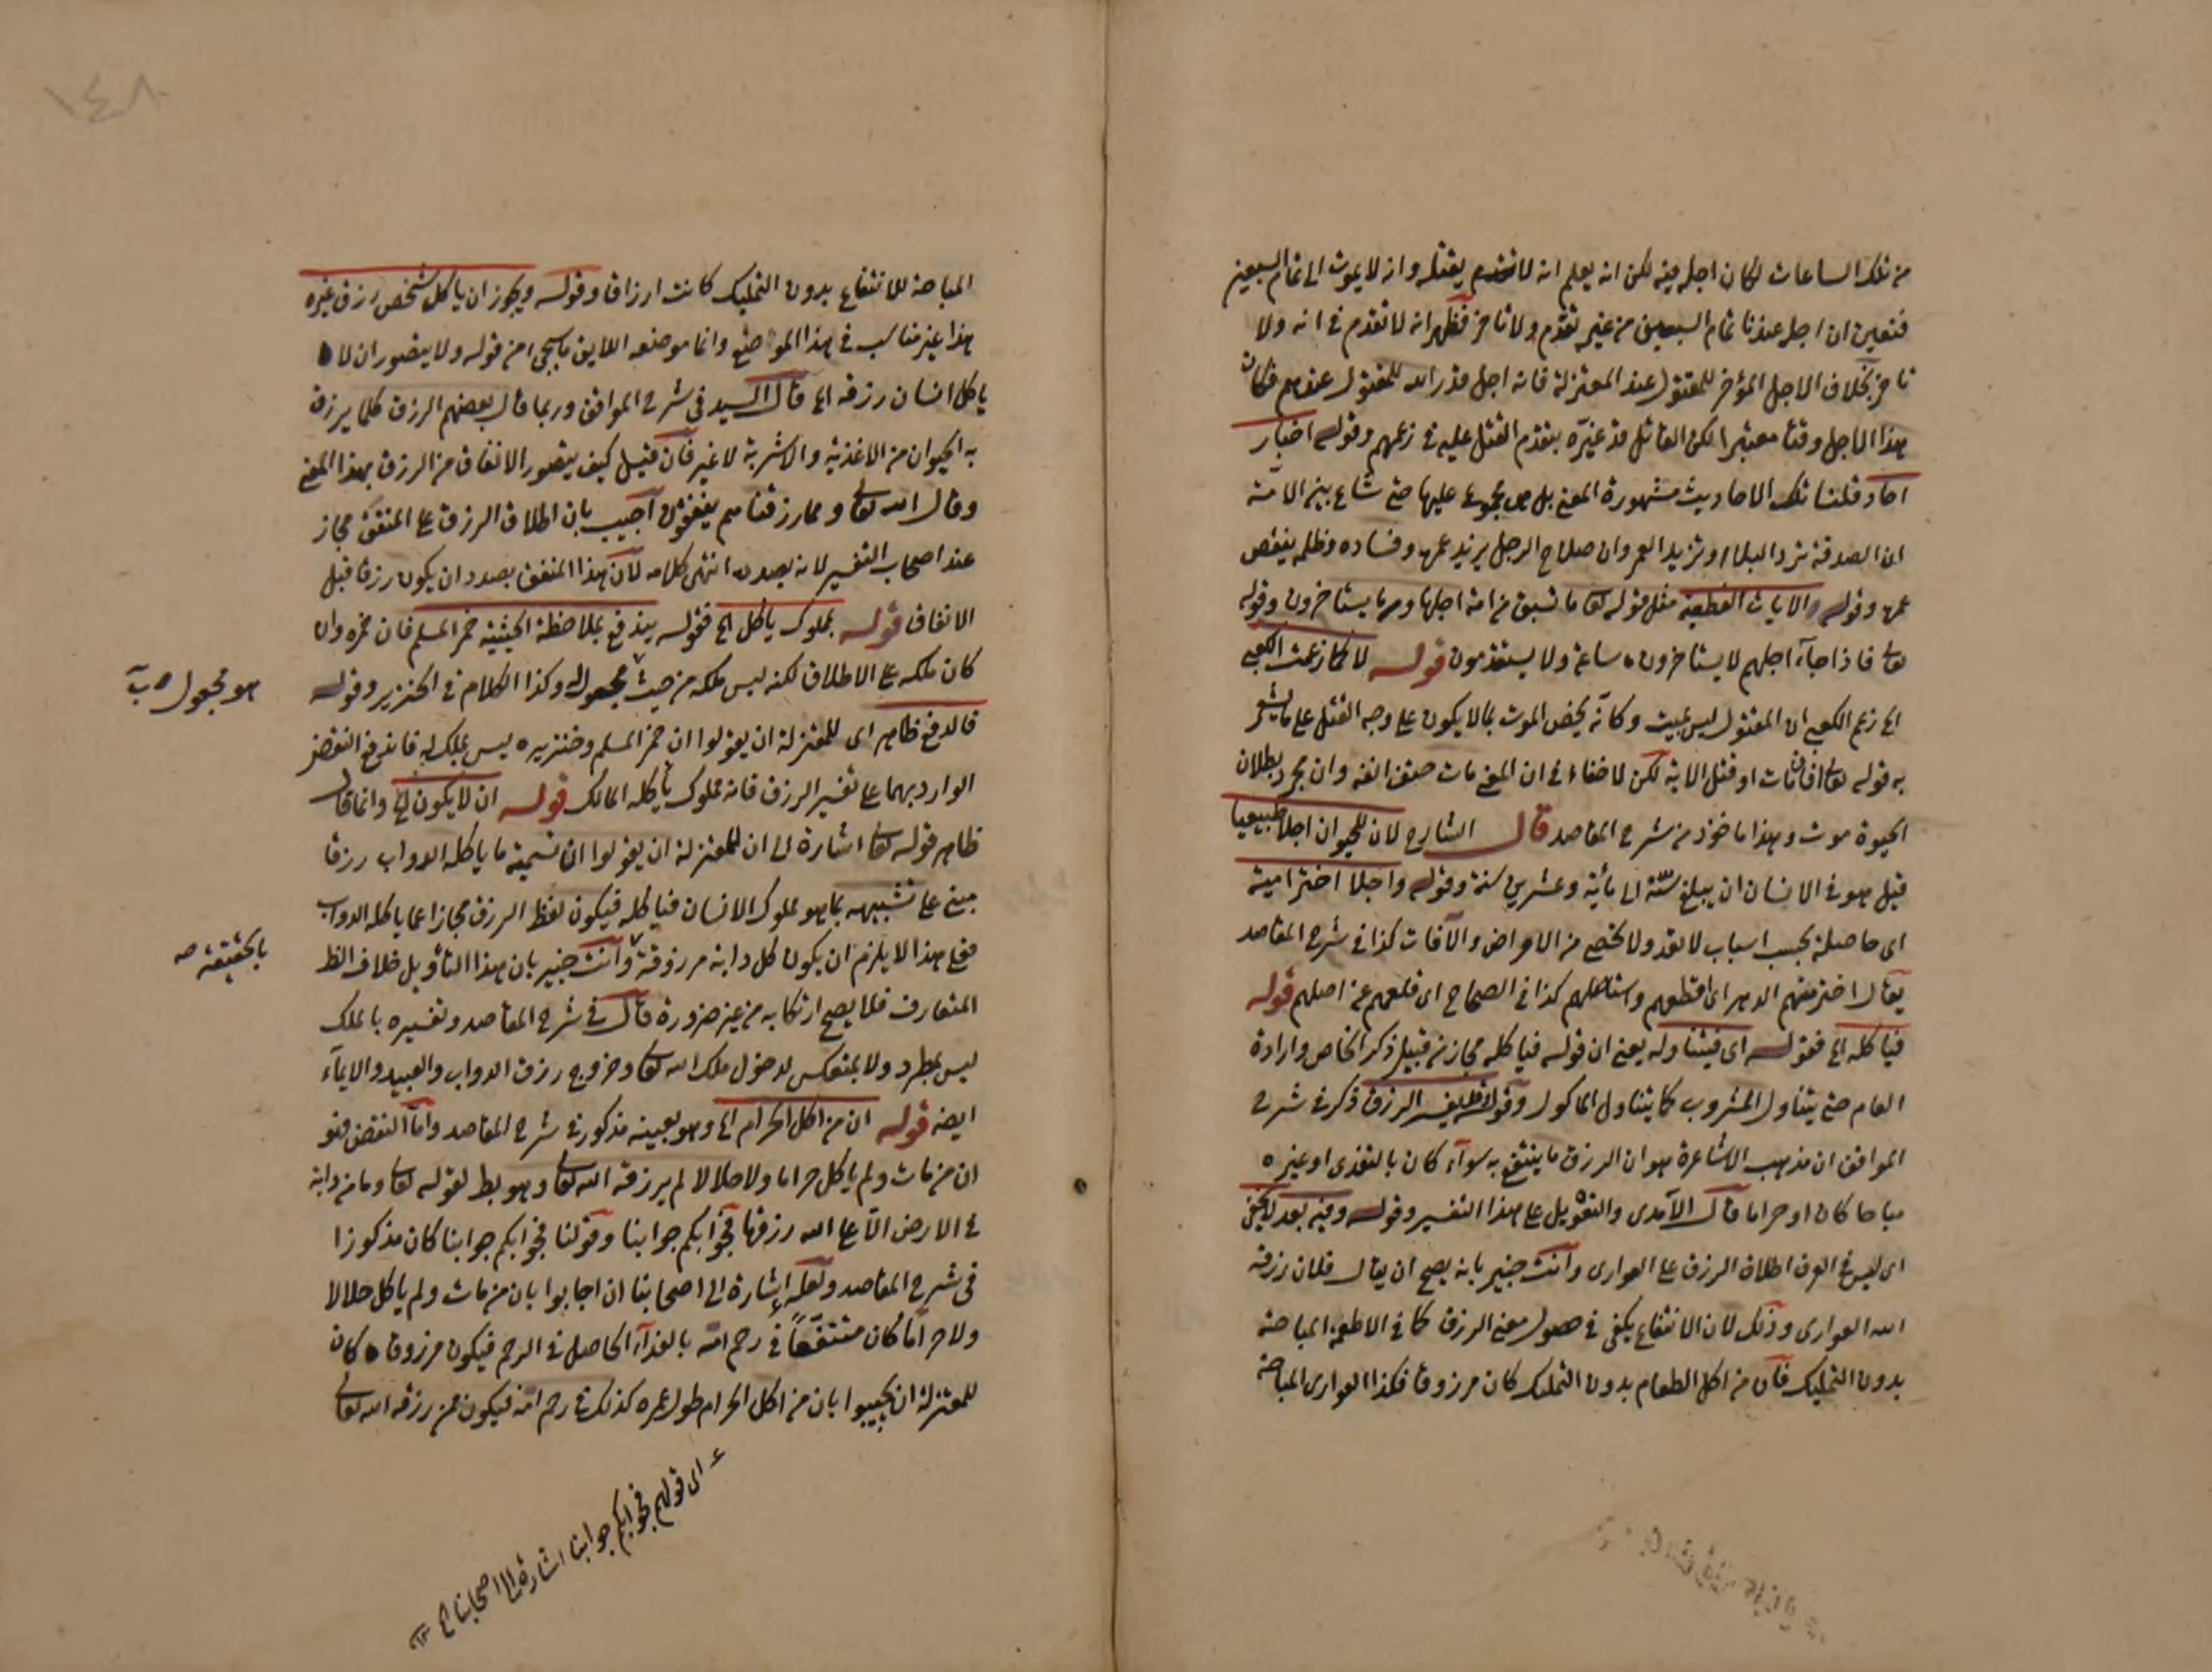 من تلك الساعات لكان اجله فيه لكن انه يعلم انه لا تقدم بقتله وانه لا يموت الى تمام السبعين
فتعين ان اجل عندنا تمام السبعين من غير تقدم ولا تأخر فظهر انه لا تقدم في انه ولا
تأخر بخلاف الاجل المؤخر للمقتول عند المعتزلة فانه اجل قدر الله للمقتول عندهم فكان
هذا الاجل وقتا معتبرا لكن القاتل قد غيره بتقدم القتل عليه في زعمهم وقوله اخبار
احاد قلنا تلك الاحاديث مشهورة المعنى بل هي مجموع عليها حتى شاع بين الامة
ان الصدقة ترد البلاء وتزيد العمر وان صلاح الرجل يزيد عمره وفساده وظلمه ينقص
عمره وقوله والايات القطعية مثل قوله تعا ما تسبق من امة اجلها وما يستأخرون وقوله
تعالى فاذا جاء اجلهم لا يستأخرون ساعة ولا يستقدمون قوله لا كما زعمت الكعبي
الخ زعم الكعبي ان المقتول ليس بميت وكأنه يخص الموت بما لا يكون على وجه القتل على ما يشعر
به قوله تعالى افان مات او قتل الاية لكن لا خفاء في ان المعنى مات حتف انفه وان مجرد بطلان
الحيوة موت وهذا ماخوذ من شرح المقاصد قال الشارح لان للحيوان اجلا طبيعيا
قيل هو في الانسان ان يبلغ سنه الى مأية وعشرين سنة وقوله واجلا اخترامية
اى حاصلة بحسب اسباب لا تعد ولا تحصى من الامراض والآفات كذا في شرح المقاصد
يقال اخترمهم الدهر اى اقتطعهم واستأصلهم كذا في الصحاح اى قلعهم عن اصلهم قوله
فيأكله الخ فقوله اى فيتناوله يعنى ان قوله فيأكله مجاز من قبيل ذكر الخاص وارادة
العام حتى يتناول المشروب كما يتناول المأكول وقوله الرزق ذكر في شرح
المواقف ان مذهب الاشاعرة هو ان الرزق ما ينتفع به سواء كان بالتغذى او غيره
مباحا كان او حراما قال الآمدى والتعويل على هذا التفسير وقوله وفيه بعد لا يخفى
اى ليس في العرف اطلاق الرزق على العوارى وانت خبير بانه يصح ان يقال فلان رزقه
الله العوارى وذلك لان الانتفاع يكفى في حصول معنى الرزق كما في الاطعمة المباحة
بدون التمليك فان من اكل الطعام بدون التملك كان مرزوقا فكذا العوارى المباحة
المباحة للانتفاع بدون التمليك كانت ارزاقا وقوله ويجوز ان ياكل شخص رزق غيره
هذا غير مناسب في هذا الموضع وانما موضعه اللايق ما سيجئ من قوله ولا يتصور ان لا
ياكل انسان رزقه الخ قال السيد في شرح المواقف وربما قال بعضهم الرزق كلما يرزق
به الحيوان من الاغذية والاشربة لا غير فان قيل كيف يتصور الانفاق من الرزق بهذا المعنى
وقال الله تعالى ومما رزقناهم ينفقون اجيب بان اطلاق الرزق على المنفق مجاز
عند اصحاب التفسير لانه بصدده انتهى كلامه لان هذا المنفق بصدد ان يكون رزقا قبل
الانفاق قوله بمملوك ياكل الخ فقوله يندفع بملاحظة الحيثية خمر المسلم فان خمره وان
كان ملكه على الاطلاق لكنه ليس ملكه من حيث مجعول له وكذا الكلام في الخنزير وقوله
فالدفع ظاهر اى للمعتزلة ان يقولوا ان خمر المسلم وخنزيره ليس بملك له فاندفع النقض
الوارد بهما على تفسير الرزق فانه مملوك يأكله المالك قوله ان لا يكون الخ وانما قال
ظاهر قوله تعالى اشارة الى ان للمعتزلة ان يقولوا ان تسمية ما ياكله الدواب رزقا
مبنى على تشبيهه بما هو مملوك الانسان فيأكله فيكون لفظ الرزق مجازا عما ياكله الدواب
فعلى هذا لا يلزم ان يكون كل دابة مرزوقة وانت خبير بان هذا التأويل خلاف الظ
المتعارف فلا يصح ارتكابه من غير ضرورة قال في شرح المقاصد وتفسيره بالملك
ليس بمطرد ولا بمنعكس لدخول ملك الله تعالى وخروج رزق الدواب والعبيد والاماء
ايضه قوله ان من اكل الحرام الخ وهو بعينه مذكور في شرح المقاصد واما النقض فهو
ان من مات ولم ياكل حراما ولا حلالا لم يرزقه الله تعالى وهو بط لقوله تعالى وما من دابة
في الارض الا على الله رزقها فجوابكم جوابنا وقولنا فجوابكم جوابنا كان مذكورا
فى شرح المقاصد ولعله اشارة الى اصحابنا ان اجابوا بان من مات ولم ياكل حلالا
ولا حراما كان منتفعا في رحم امه بالغذاء الحاصل في الرحم فيكون مرزوقا كان
للمعتزلة ان يجيبوا بان من اكل الحرام طول عمره كذلك في رحم امه فيكون ممن رزقه الله تعالى
هو مجعول
بالحقيقة صه
اى قولهم فجوابكم جوابنا اشارة الى اصحابنا الخ
١٤٨